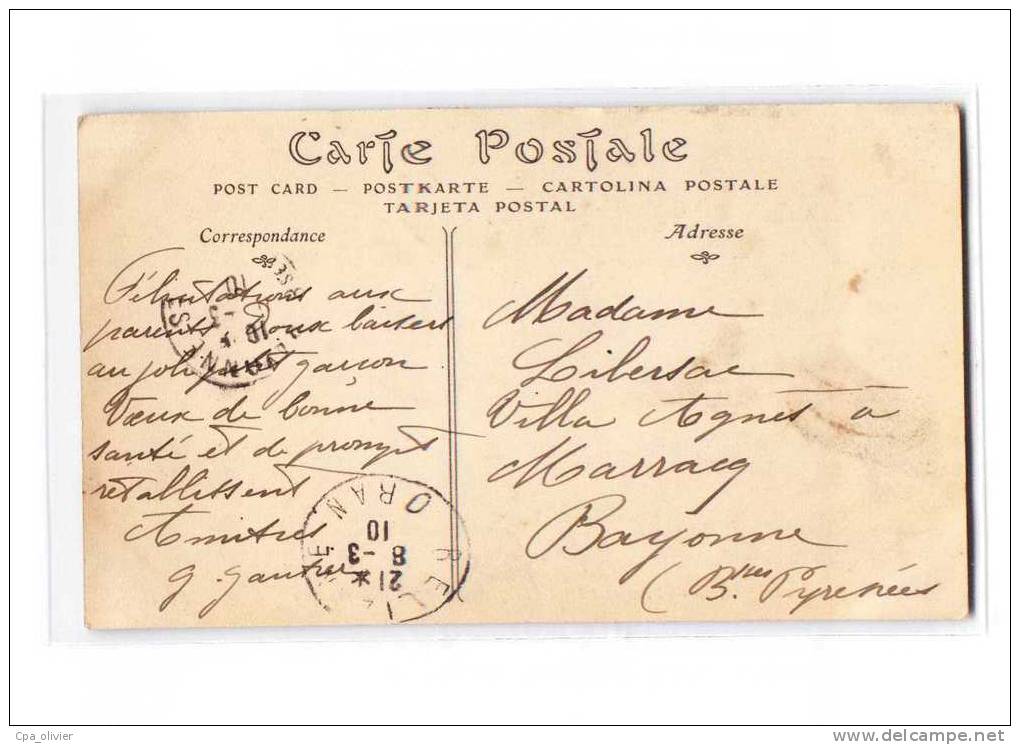 Carte Postale
POST CARD — POSTKARTE — CARTOLINA POSTALE
TARJETA POSTAL
Correspondance
Félicitations aux
parents Doux baisers
au joli petit garçon
Vœux de bonne
santé et de prompt
retablissent
Amitiés
G. Gautier
Adresse
Madame
Libersac
Villa Agnès à
Marracq
Bayonne
(Bses Pyrenées
ORAN
21 *
8 -3
10
10
-3
10
Cpa_olivier
delcampe.net